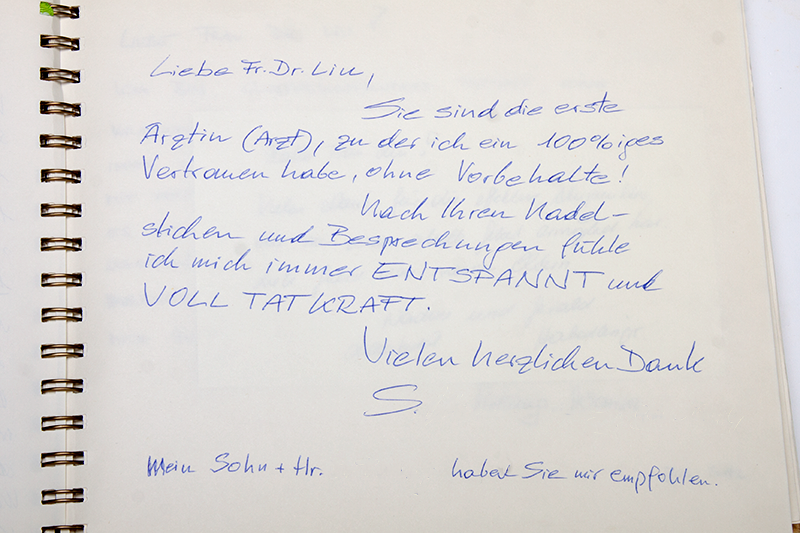 Liebe Fr. Dr. Liu,
Sie sind die erste
Ärztin (Arzt), zu der ich ein 100%iges
Vertrauen habe, ohne Vorbehalte!
Nach Ihren Nadel-
stichen und Besprechungen fühle
ich mich immer ENTSPANNT und
VOLL TATKRAFT.
Vielen herzlichen Dank
S.
Mein Sohn + Hr. haben Sie mir empfohlen.